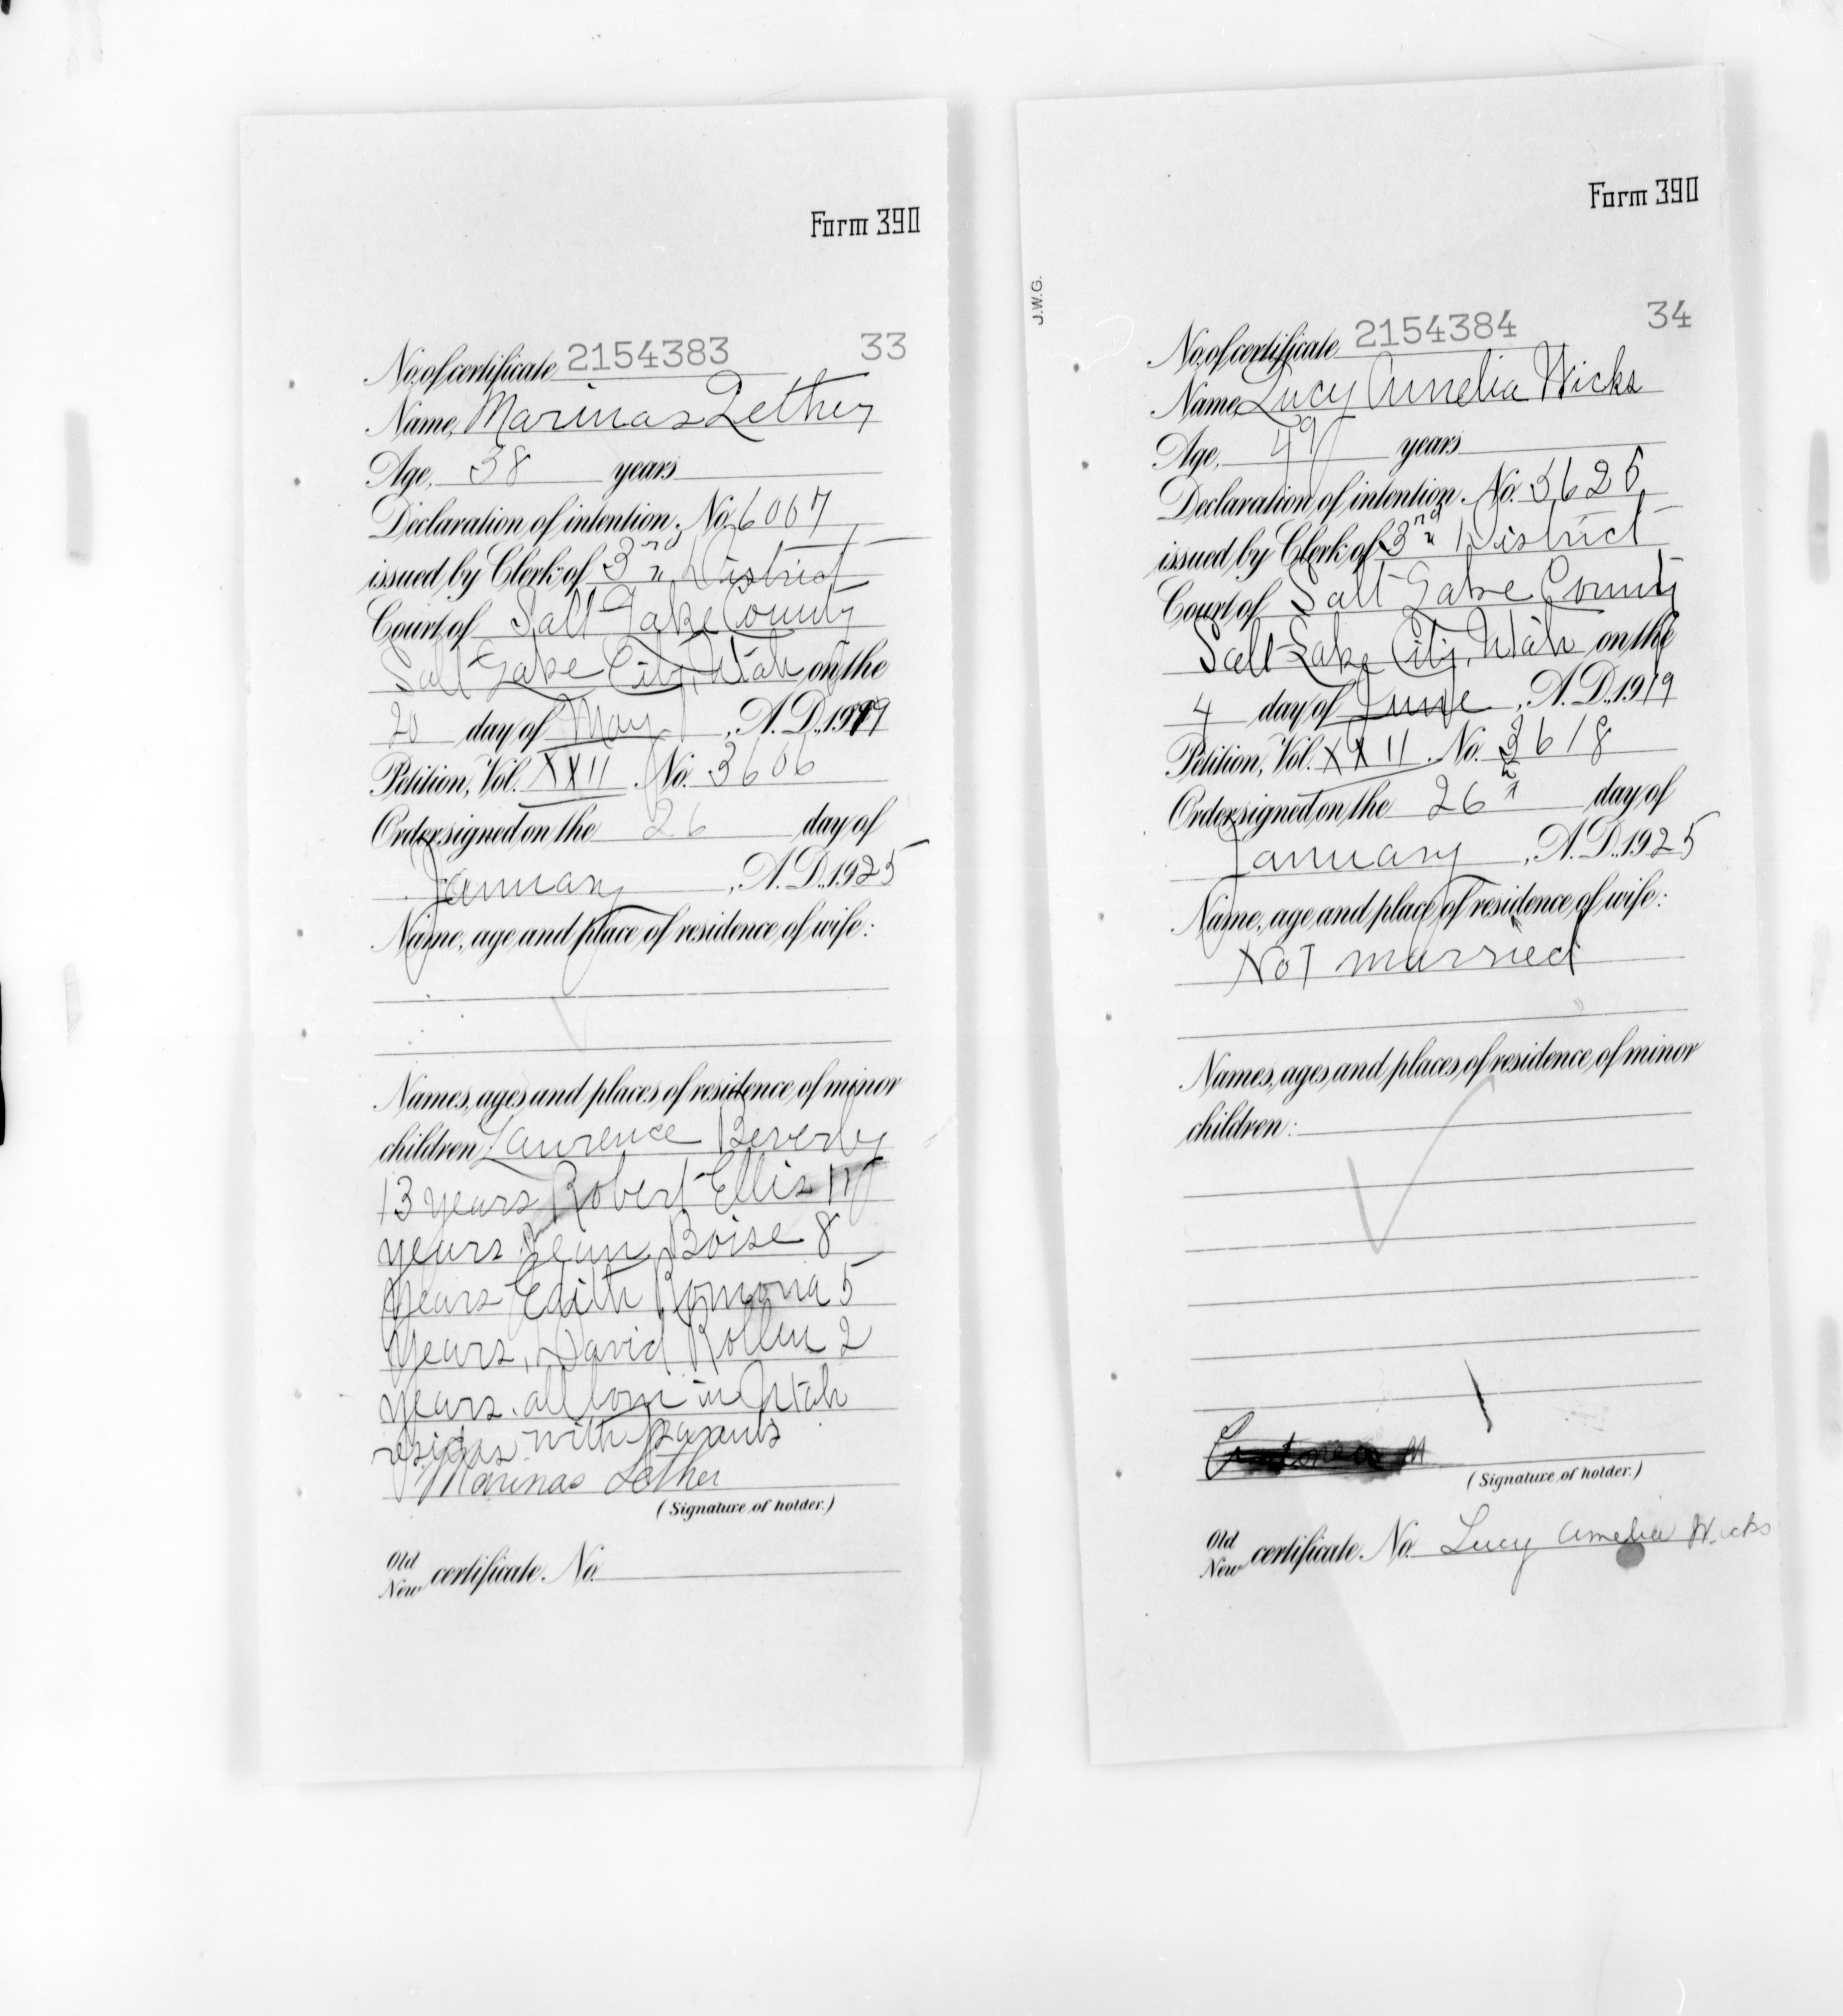 Form 390
No. of certificate 2154383 33
Name, Marinas Lether
Age, 38 years
Declaration of intention, No. 6067
issued by Clerk of 3rd District
Court of Salt Lake County
Salt Lake City, Utah on the
20 day of May, A.D. 1919
Petition, Vol. XXII No. 3606
Order signed on the 26 day of
January, A.D. 1925
Name, age and place of residence of wife:
Names, ages and places of residence of minor
children Lawrence Beverly
13 years Robert Ellis 11
years Jean Boise 8
years Edith Romona 5
years, David Rollin 2
years. all born in Utah
resides with parents
Marinas Lether
(Signature of holder.)
Old
New certificate No.
Form 390
J.W.G.
No. of certificate 2154384 34
Name, Lucy Amelia Wicks
Age, 49 years
Declaration of intention, No. 5625
issued by Clerk of 3rd District
Court of Salt Lake County
Salt Lake City, Utah on the
4 day of June, A.D. 1919
Petition, Vol. XXII. No. 3618
Order signed on the 26th day of
January, A.D. 1925
Name, age and place of residence of wife:
Not married
Names, ages and places of residence of minor
children:
(Signature of holder.)
Old
New certificate No. Lucy Amelia Wicks